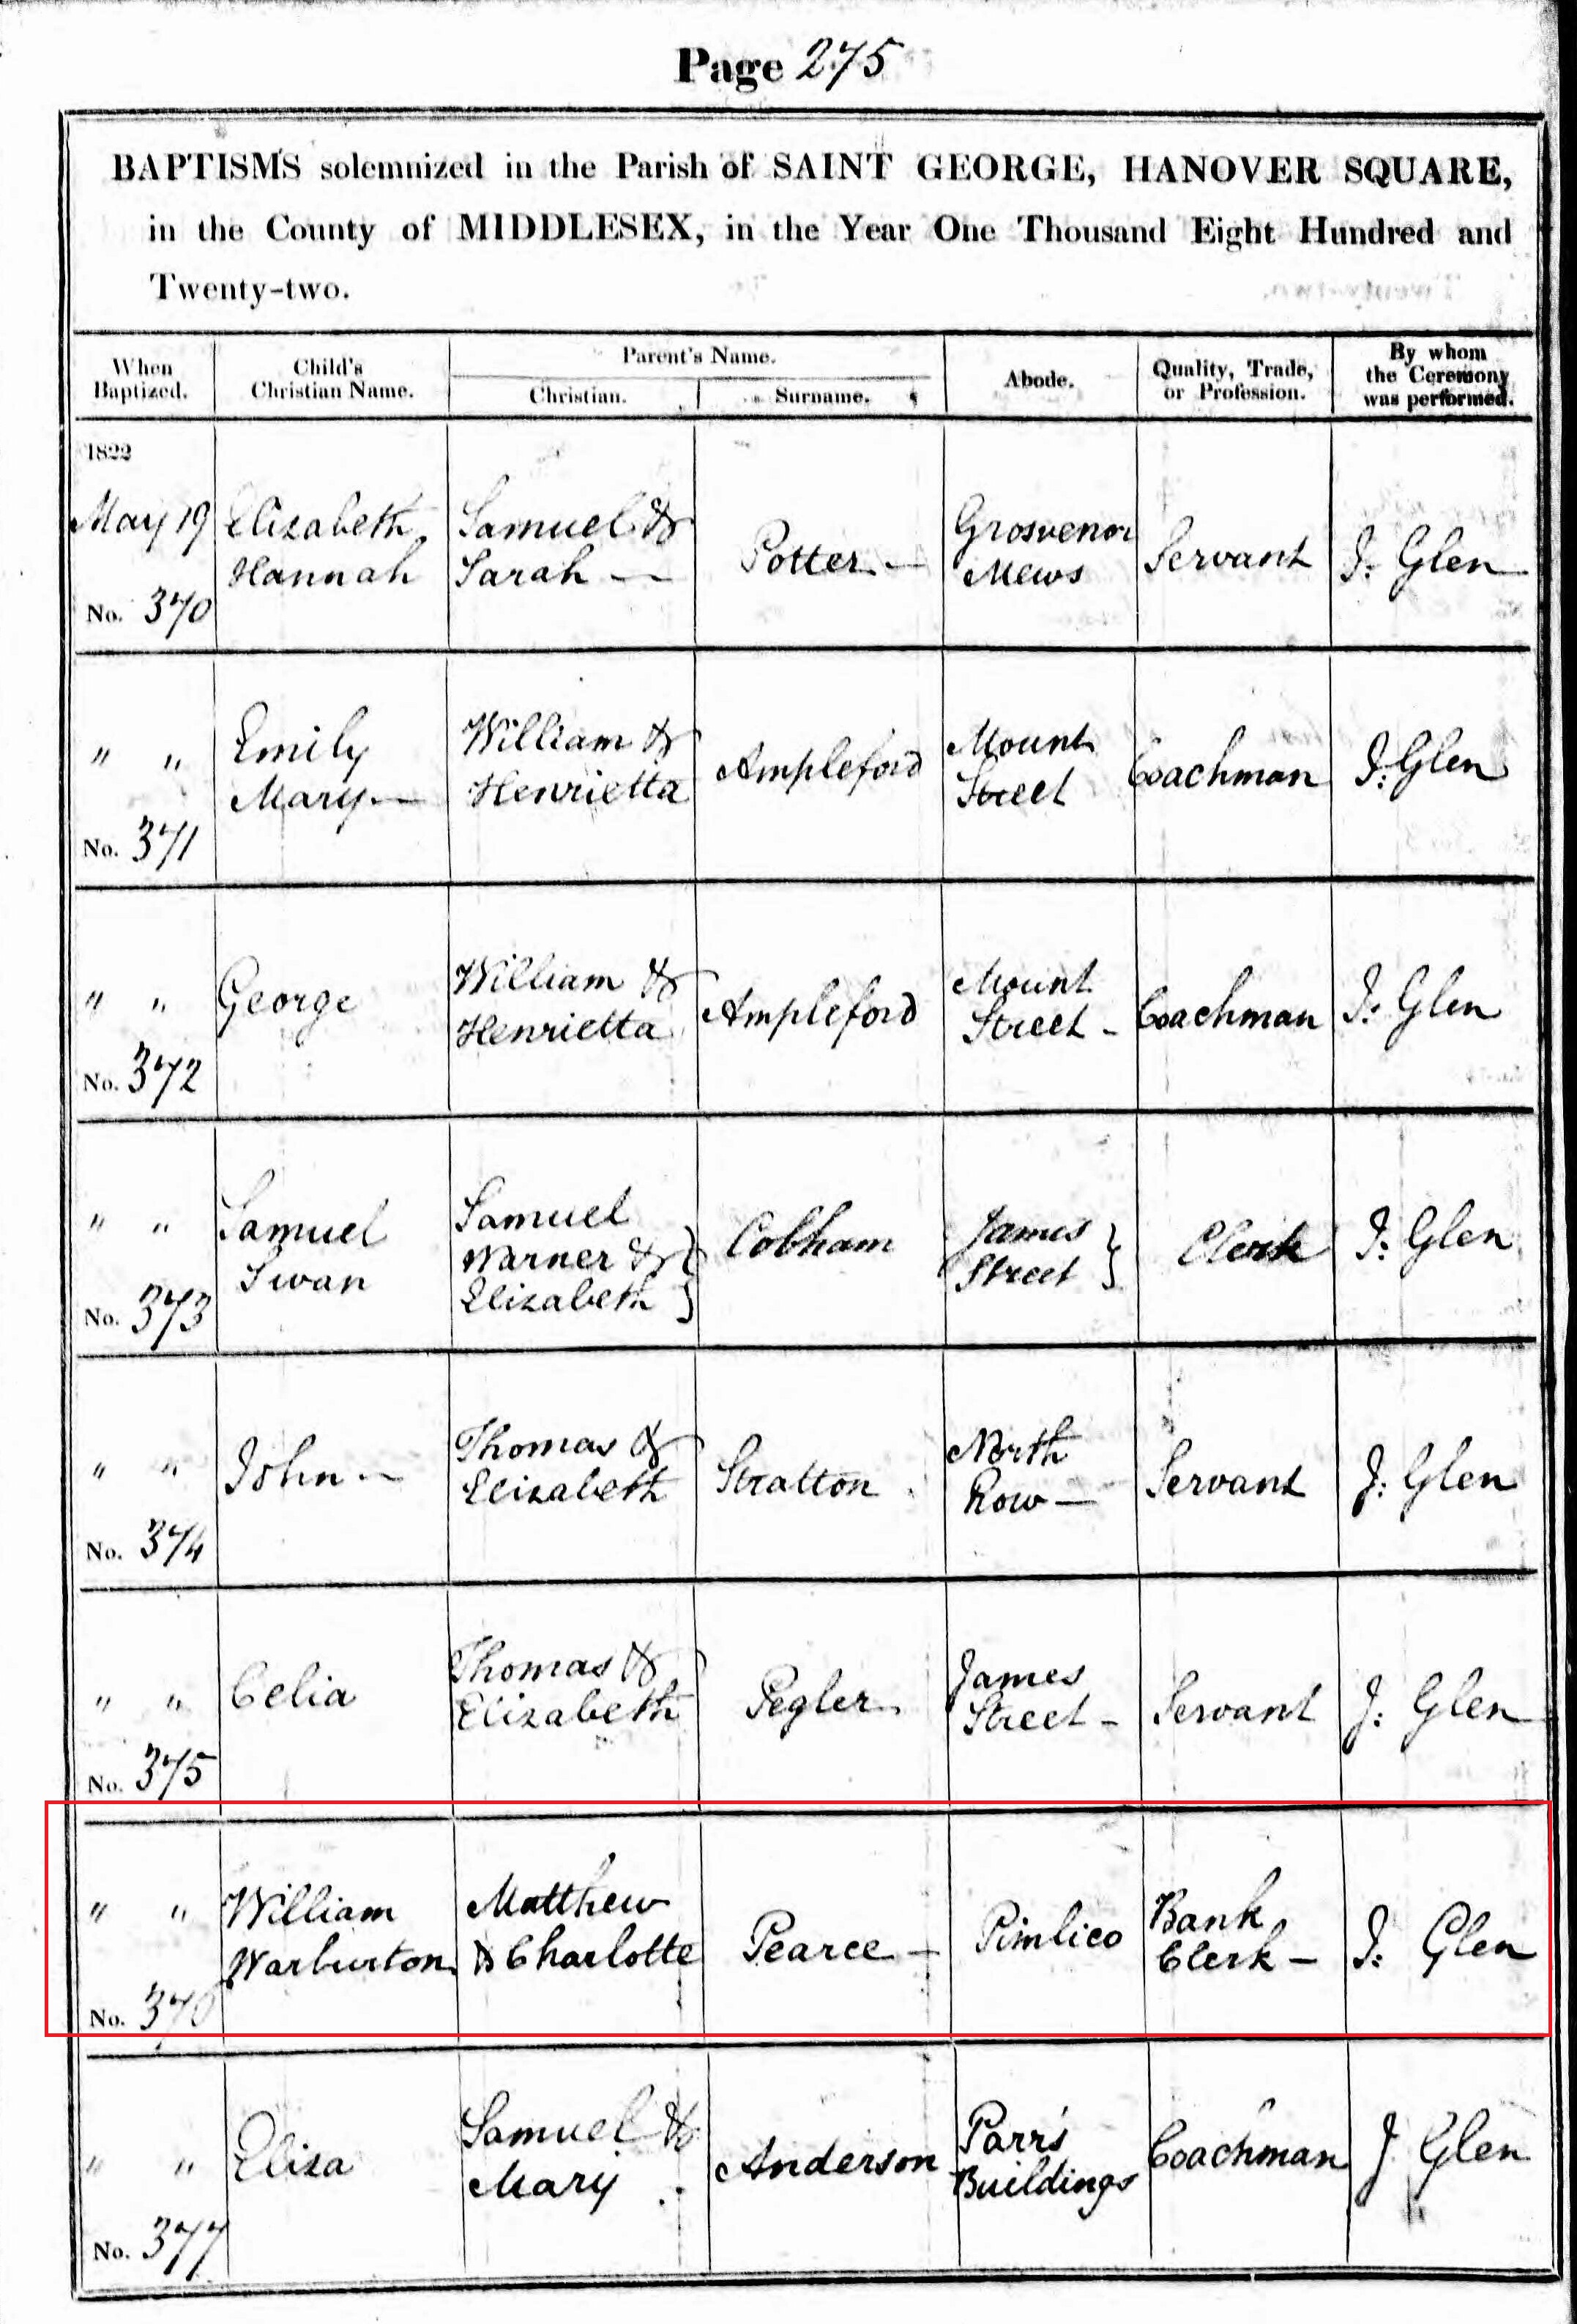 Page 275
BAPTISMS solemnized in the Parish of SAINT GEORGE, HANOVER SQUARE,
in the County of MIDDLESEX, in the Year One Thousand Eight Hundred and
Twenty-two.
When Baptized.
Child's Christian Name.
Parent's Name.
Christian.
Surname.
Abode.
Quality, Trade, or Profession.
By whom the Ceremony was performed.
1822
May 19
No. 370
Elizabeth
Hannah
Samuel &
Sarah —
Potter —
Grosvenor
Mews
Servant
J: Glen
" "
No. 371
Emily
Mary —
William &
Henrietta
Ampleford
Mount
Street
Coachman
J: Glen
" "
No. 372
George
William &
Henrietta
Ampleford
Mount
Street -
Coachman
J: Glen
" "
No. 373
Samuel
Swan
Samuel
Warner &
Elizabeth }
Cobham
James
Street }
Clerk
J: Glen
" "
No. 374
John —
Thomas &
Elizabeth
Stratton
North
Row —
Servant
J: Glen
" "
No. 375
Celia
Thomas &
Elizabeth
Pegler
James
Street -
Servant
J: Glen
" "
No. 376
William
Warburton
Matthew
& Charlotte
Pearce —
Pimlico
Bank
Clerk —
J: Glen
" "
No. 377
Eliza
Samuel &
Mary
Anderson
Parr's
Buildings
Coachman
J Glen